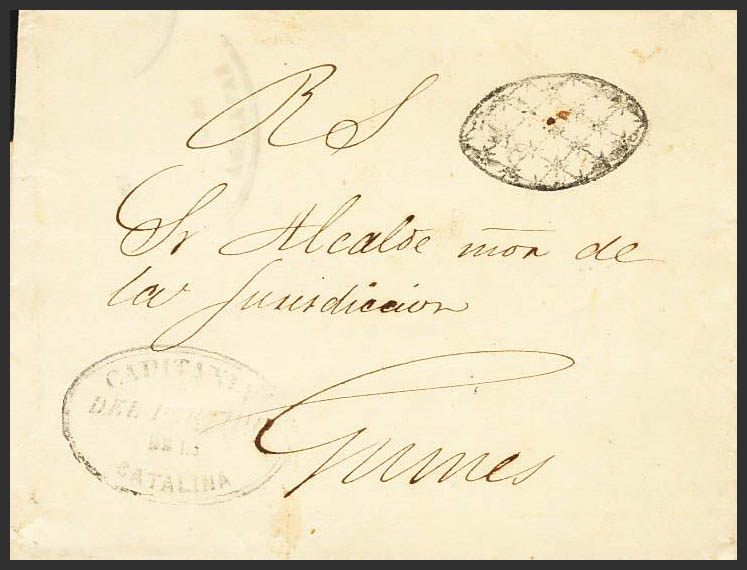 R S
Sr Alcalde mōr de
la Jurisdiccion
Guines
CAPITANIA
DEL PARTIDO
DE LA
CATALINA